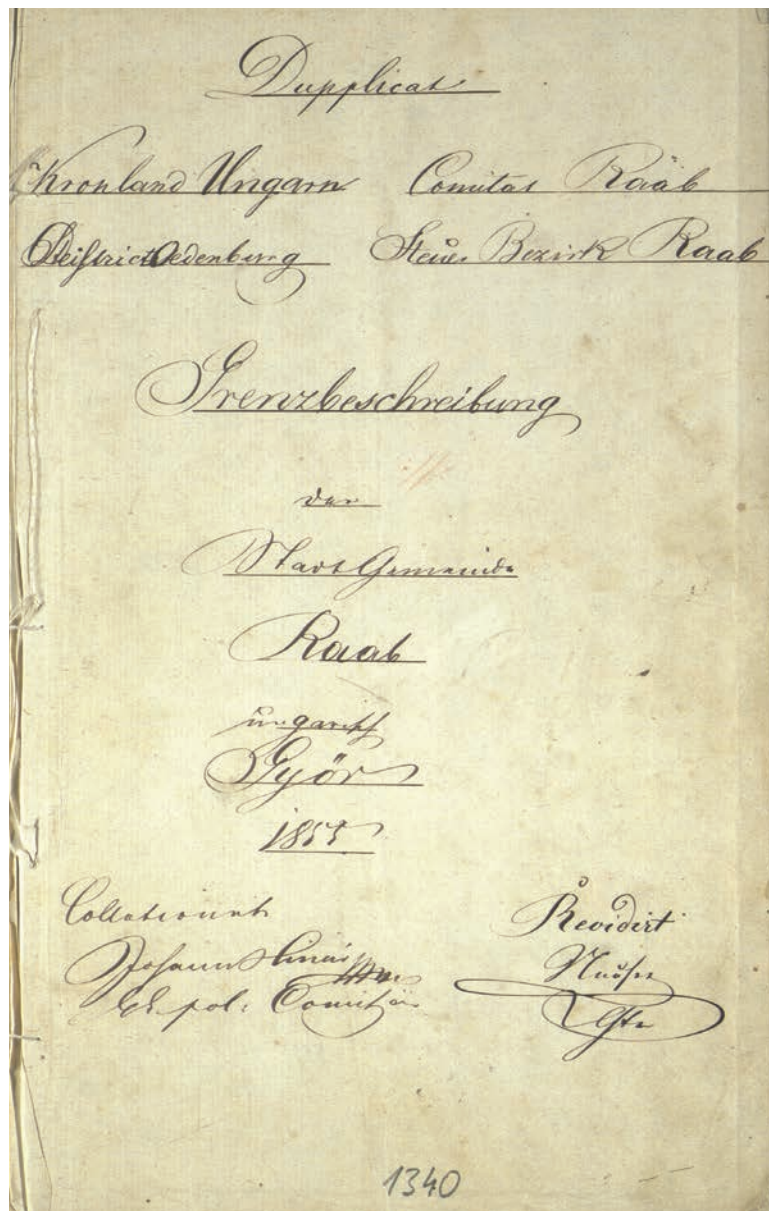 Dupplicat
Kronland Ungarn Comitat Raab
District Oedenburg Steuer Bezirk Raab
Grenzbeschreibung
der
Stadt Gemeinde
Raab
ungarisch
Györ
1855
Collationirt
Revidirt
Johann
pol:
1340